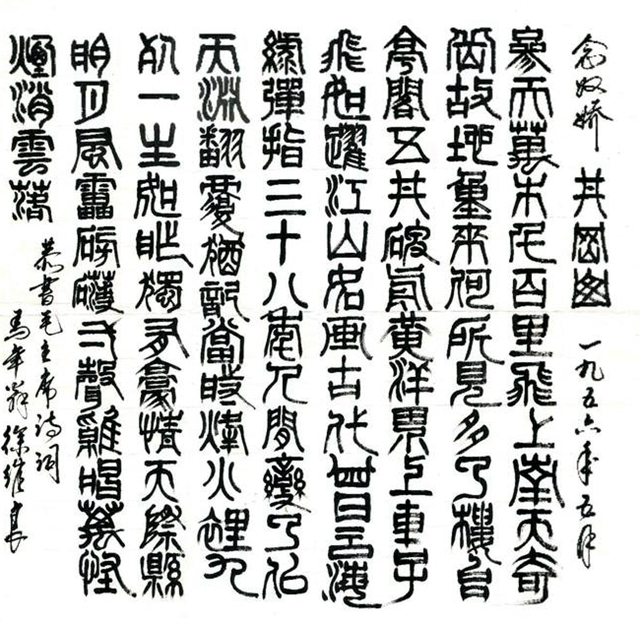 念奴娇 井岡山 一九五六年五月
參天萬木千百里飛上南天奇
岳故地重來何所見多了樓台
亭閣五井碑前黃洋界上車子
飛如躍江山如画古代曾云海
綠彈指三十八年人間變了似
天淵翻覆猶記當時烽火裡九
死一生如昨獨有豪情天際縣
明月風靁磅礴一聲雞唱萬怪
煙消雲落
恭書毛主席诗词
馬年 徐維